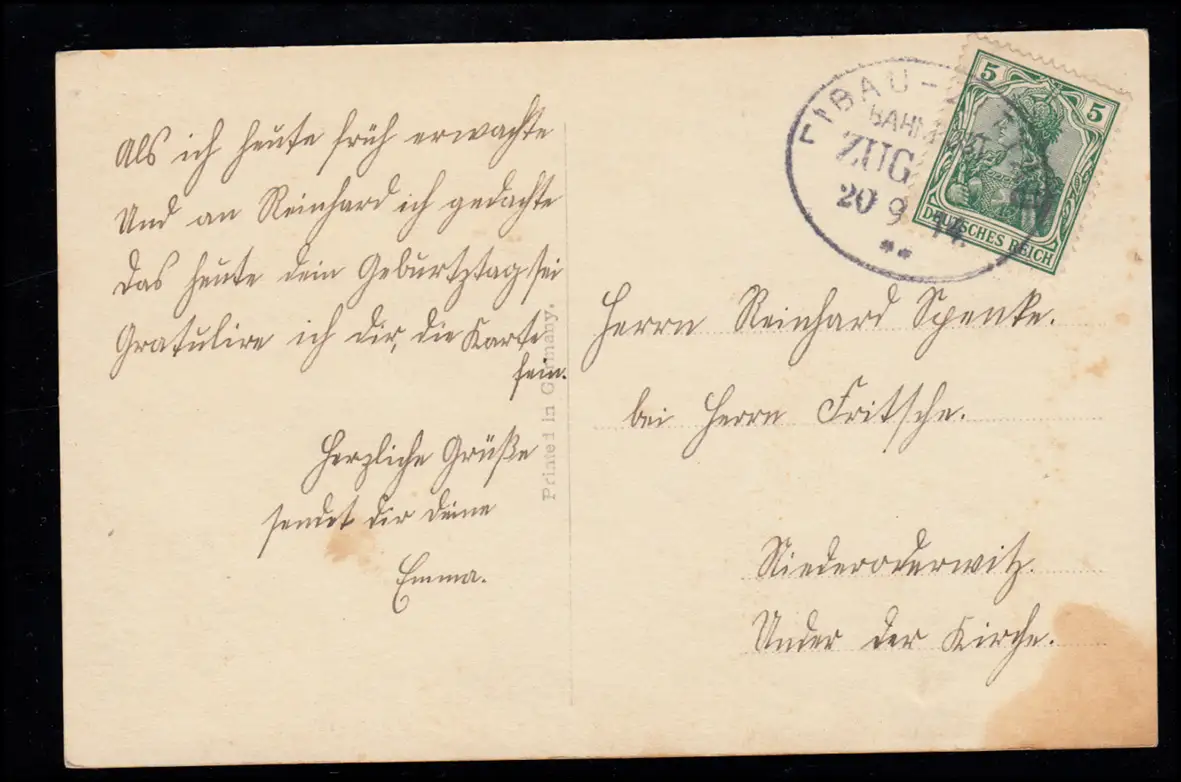 Als ich heute früh erwachte
Und an Reinhard ich gedachte
Das heute dein Geburtztag sei
Gratulire ich dir, die Karte
sein.
Herzliche Grüße
sendet dir deine
Emma.
Printed in Germany.
EIBAU-
BAHNPOST
ZUG
20 9 14.
**
5 5
DEUTSCHES REICH
Herrn Reinhard Spenke.
bei Herrn Fritsche.
Niederoderwitz.
Under der Kirche.